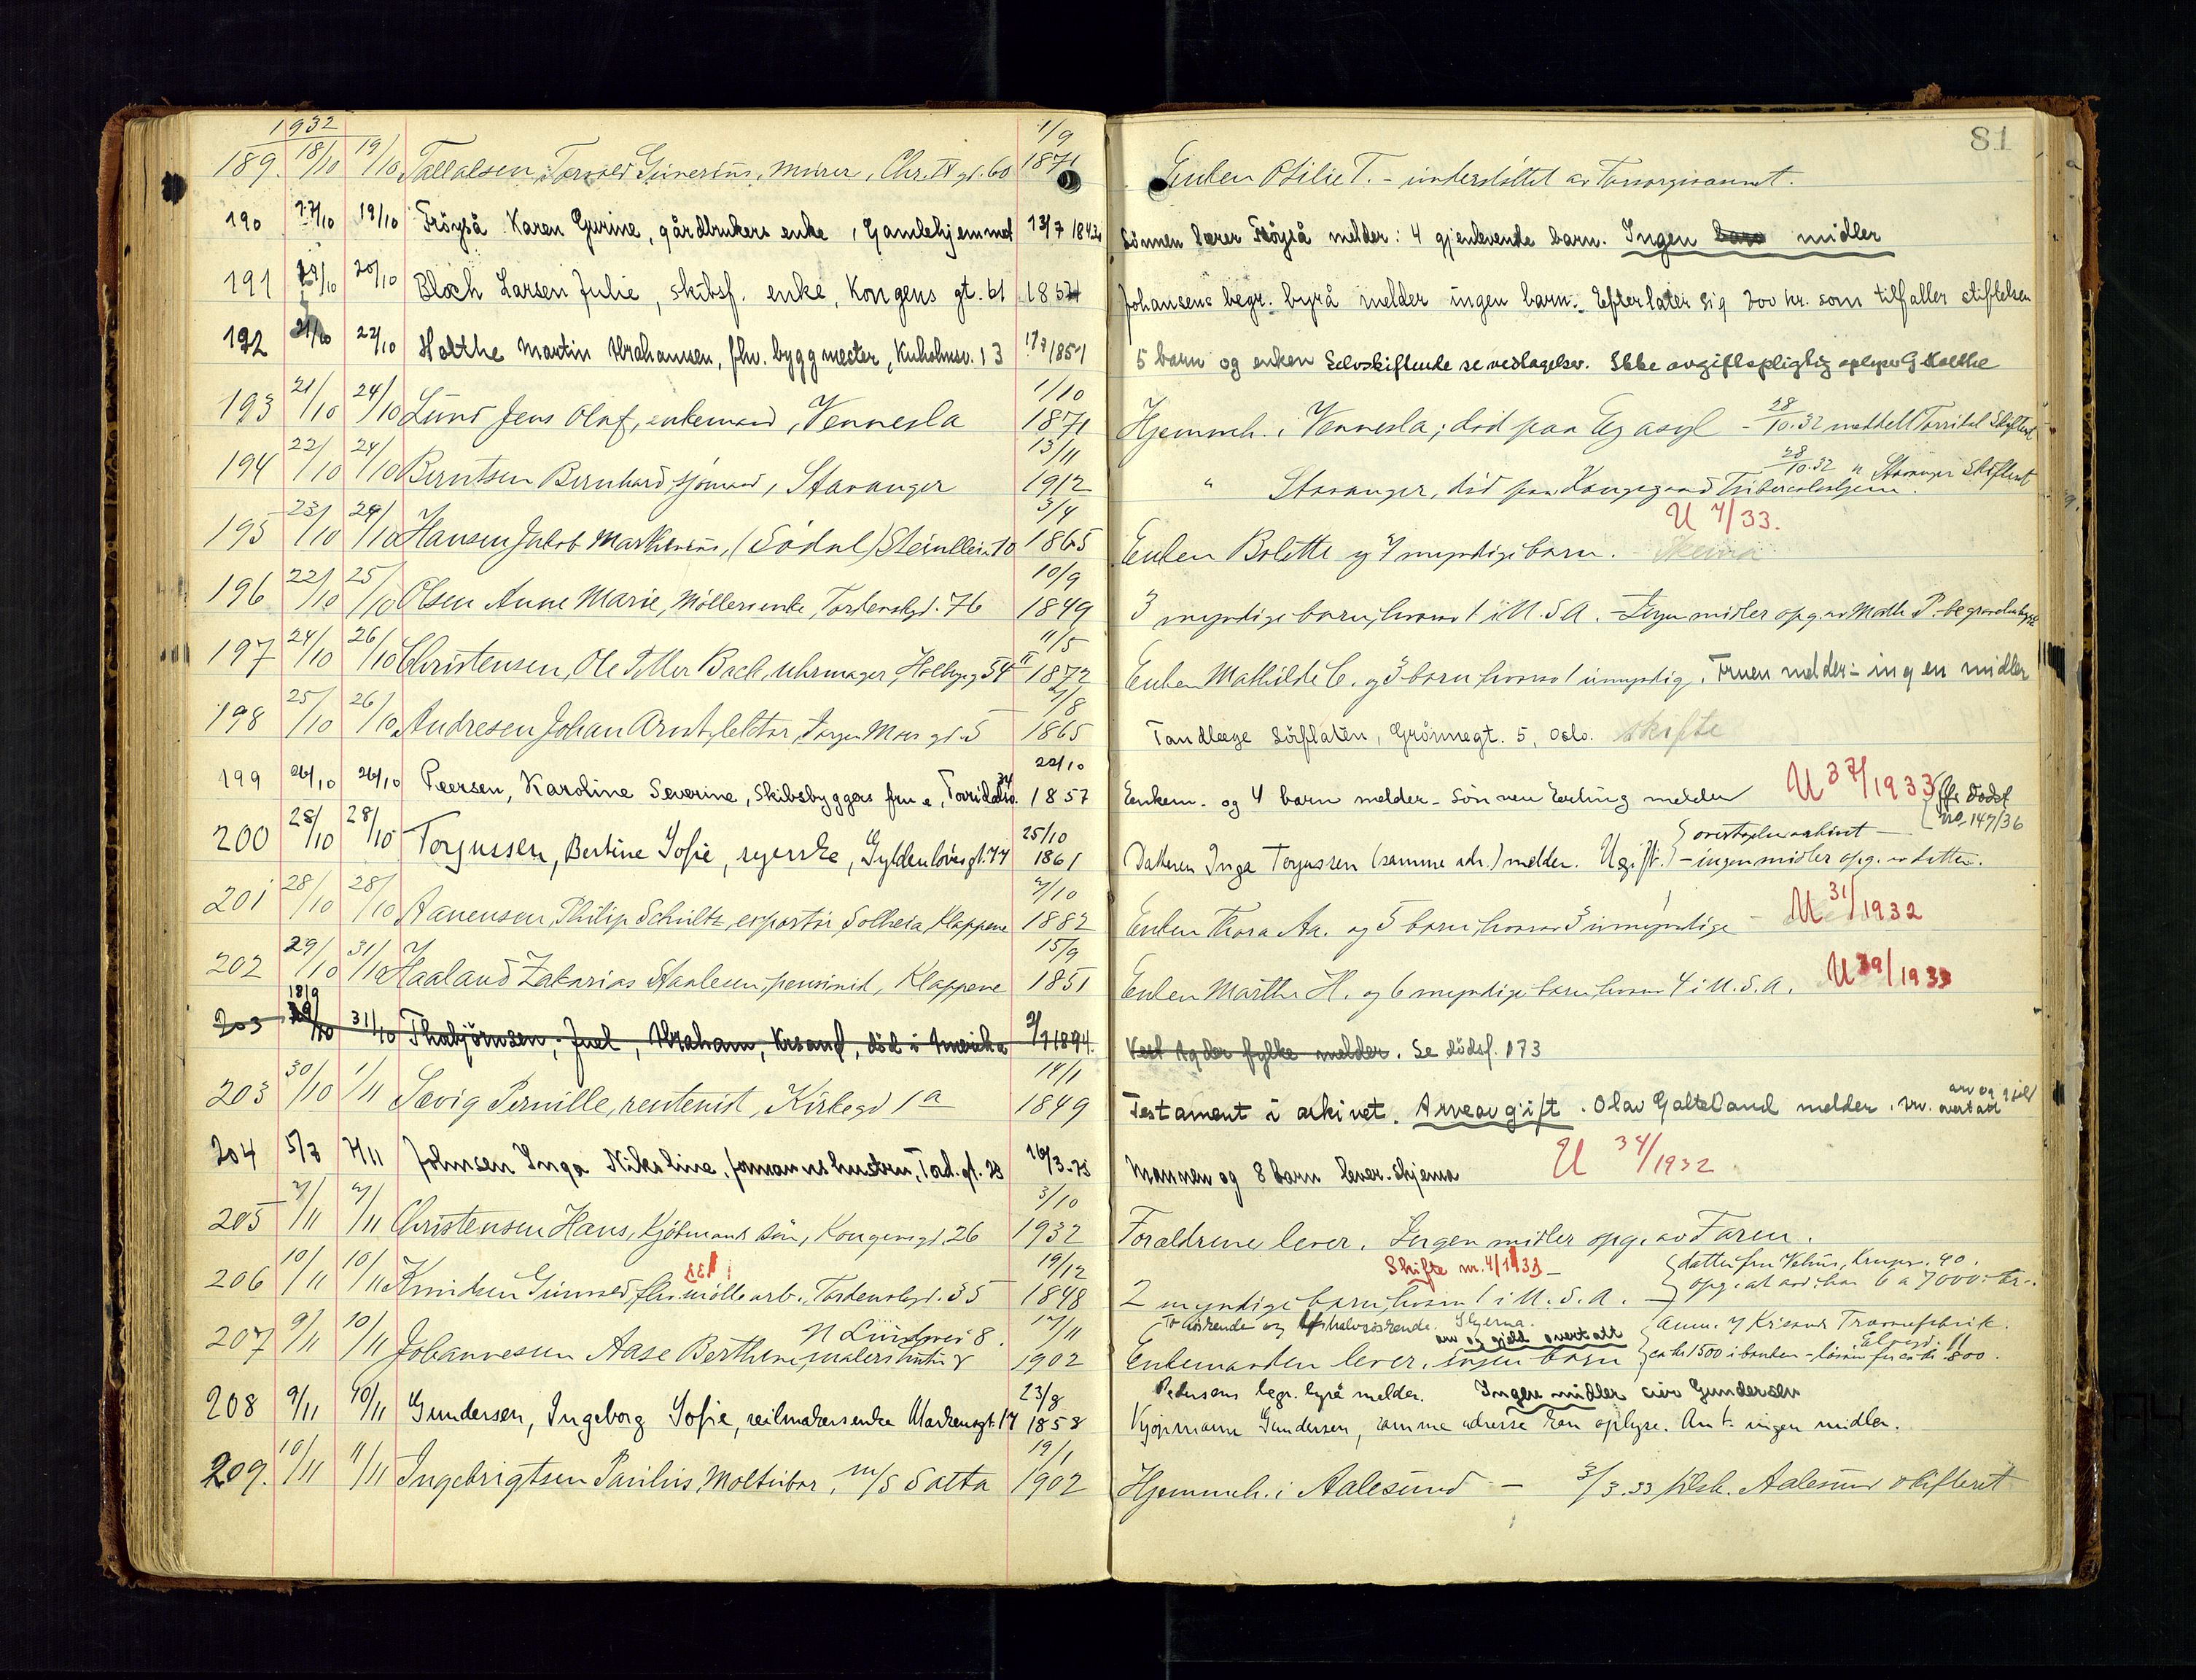 1932
81
189. 18/10 19/10 Tallaksen, Torvald Gunerius, murer, Chr. IV gt. 60 1/9 1871 Enken Otilie T. - understöttet av Forsorgsvæsnet.
190 17/10 19/10 Fröyså Karen Gurine, gårdbrukers enke, Gamlehjemmet 13/7 1842 Sönnen Lærer Fröyså melder: 4 gjenlevende barn. Ingen midler
191 19/10 20/10 Bloch Larsen Julie, skibsf. enke, Kongens gt. 61 Johansens begr. byrå melder ingen barn. Efterlater sig 200 kr. som tilfaller stiftelsen
192 21/10 22/10 Holthe Martin Abrahamsen, fhv. byggmester, Kuholmsv. 13 5 barn og enken Selvskiftende se vedtagelse. Ikke avgiftspligtig oplyser G Holthe
193 21/10 24/10 Lund Jens Olaf, enkemand, Vennesla 1/10 1871 Hjemmeh. i Vennesla; död paa Eg asyl - 28/10.32 meddelt Torridal Skifteret
194 22/10 24/10 Berntsen Bernhard sjömand, Stavanger 13/11 1912 " Stavanger, död paa Kongsgaard Tuberculoshjem. 28/10.32 " Stavanger Skifteret
195 23/10 24/10 Hansen Jakob Mathinius, (Södal) Steinkleiv 10 3/4 1865 Enken Bolette og 7 myndige barn. Skema U 4/33.
196 22/10 25/10 Olsen Anne Marie, Möllers enke, Tordenskgd. 76 10/9 1849 3 myndige barn, hvorav 1 i U.S.A. - Ingen midler opg. av
197 24/10 26/10 Christensen, Ole Peller Bach, uhrmager, Holbergg 54 II 11/5 1872 Enken Mathilde C. og 3 barn hvorav 1 umyndig. Fruen melder - ingen midler
198 25/10 26/10 Andresen Johan Arnt, lektor, Jörgen Moes gt. 5 1865 Tandlæge Söflaten, Grönnegt. 5, Oslo. skifte
199 26/10 26/10 Peersen, Karoline Severine, Skibsbyggers frue, Torridalsv. 34 22/10 1857 Enkem. og 4 barn melder - Sönnen Erling melder U 37/1933 (fr. dödsf no. 147/36
200 28/10 28/10 Torjussen, Bertine Sofie, syerske, Gyldenlövesgt. 44 25/10 1861 Datteren Inga Torjussen (samme adr.) melder. Ugift. - ingen midler opg. av datter.
201 28/10 28/10 Aanensen, Philip Schultz, exportör Solheia, Klappene 1882 Enken Thora Aa. og 5 barn, hvorav 3 umyndige - U 31/1932
202 29/10 31/10 Haaland Zakarias Staalesen, pensionist, Klappene 15/9 1851 Enken Marthe H. og 6 myndige barn, hvorav 4 i U.S.A. U 39/1933
203 18/9 31/10 Thorbjörnsen, Juel, Abraham, Krsand, död i Amerika Vest Agder fylke melder. Se dödsf. 173
203 30/10 1/11 Sævig Pernille, rentenist, Kirkegd 1a 14/1 1849 Testament i arkivet. Arveavgift. Olav Galteland melder. arv og gjeld overtatt
204 Johnsen Inga Nikoline, formannshustru, Tord. gt. 28 16/3-75 Mannen og 8 barn lever. Skjema U 34/1932
205 Christensen Hans, Kjöbmands sön, Kongensgt. 26 3/10 1932 Forældrene lever. Ingen midler opg. av Faren.
206 10/11 10/11 Knudsen Gunvald, fhv. möllearb. Tordenskgd. 35 19/12 1848 Skifte nr. 4/1933 - 2 myndige barn, hvorav 1 i U.S.A. - datter fru Vehus, Kruges. 90. opg. at avd. har 6 a 7000:- kr.
207 9/11 10/11 Johannesen Aase Berthine malers hustru N Lundvei 8. 1902 To söskende og halvsöskende. Skjema. Enkemanden lever, ingen barn arv og gjeld overtatt ca kr 1500 i banken - lösöre for ca kr 800.
208 9/11 10/11 Gundersen, Ingeborg Sofie, seilmakersenke Markensgt. 17 23/8 1858 Pedersens begr. byrå melder. Ingen midler Gundersen
Kjöpmann Gundersen, samme adresse kan oplyse. Ant. ingen midler.
209. 10/11 11/11 Ingebrigtsen Paulus, Moltubar, m/s Satta 19/1 1902 Hjemmeh. i Aalesund - 3/3.33 tilsk. Aalesund skifteret